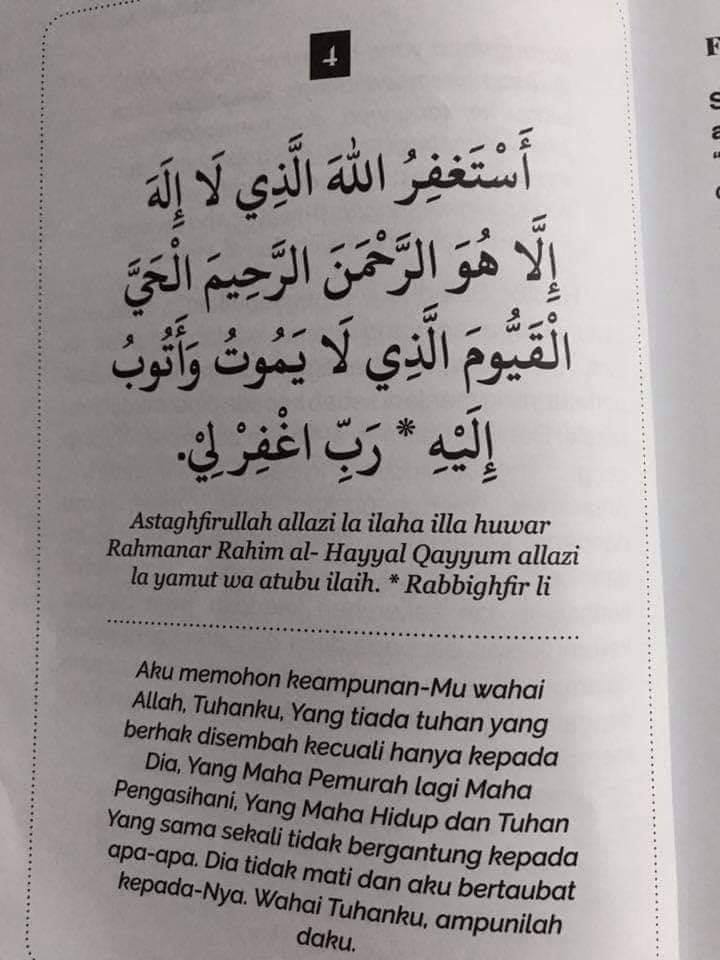 4
أَسْتَغْفِرُ اللهَ الَّذِي لَا إِلَهَ
إِلَّا هُوَ الرَّحْمَنَ الرَّحِيمَ الْحَيَّ
الْقَيُّومَ الَّذِي لَا يَمُوتُ وَأَتُوبُ
إِلَيْهِ * رَبِّ اغْفِرْ لِيْ.
Astaghfirullah allazi la ilaha illa huwar
Rahmanar Rahim al- Hayyal Qayyum allazi
la yamut wa atubu ilaih. * Rabbighfir li
Aku memohon keampunan-Mu wahai
Allah, Tuhanku, Yang tiada tuhan yang
berhak disembah kecuali hanya kepada
Dia, Yang Maha Pemurah lagi Maha
Pengasihani, Yang Maha Hidup dan Tuhan
Yang sama sekali tidak bergantung kepada
apa-apa. Dia tidak mati dan aku bertaubat
kepada-Nya. Wahai Tuhanku, ampunilah
daku.